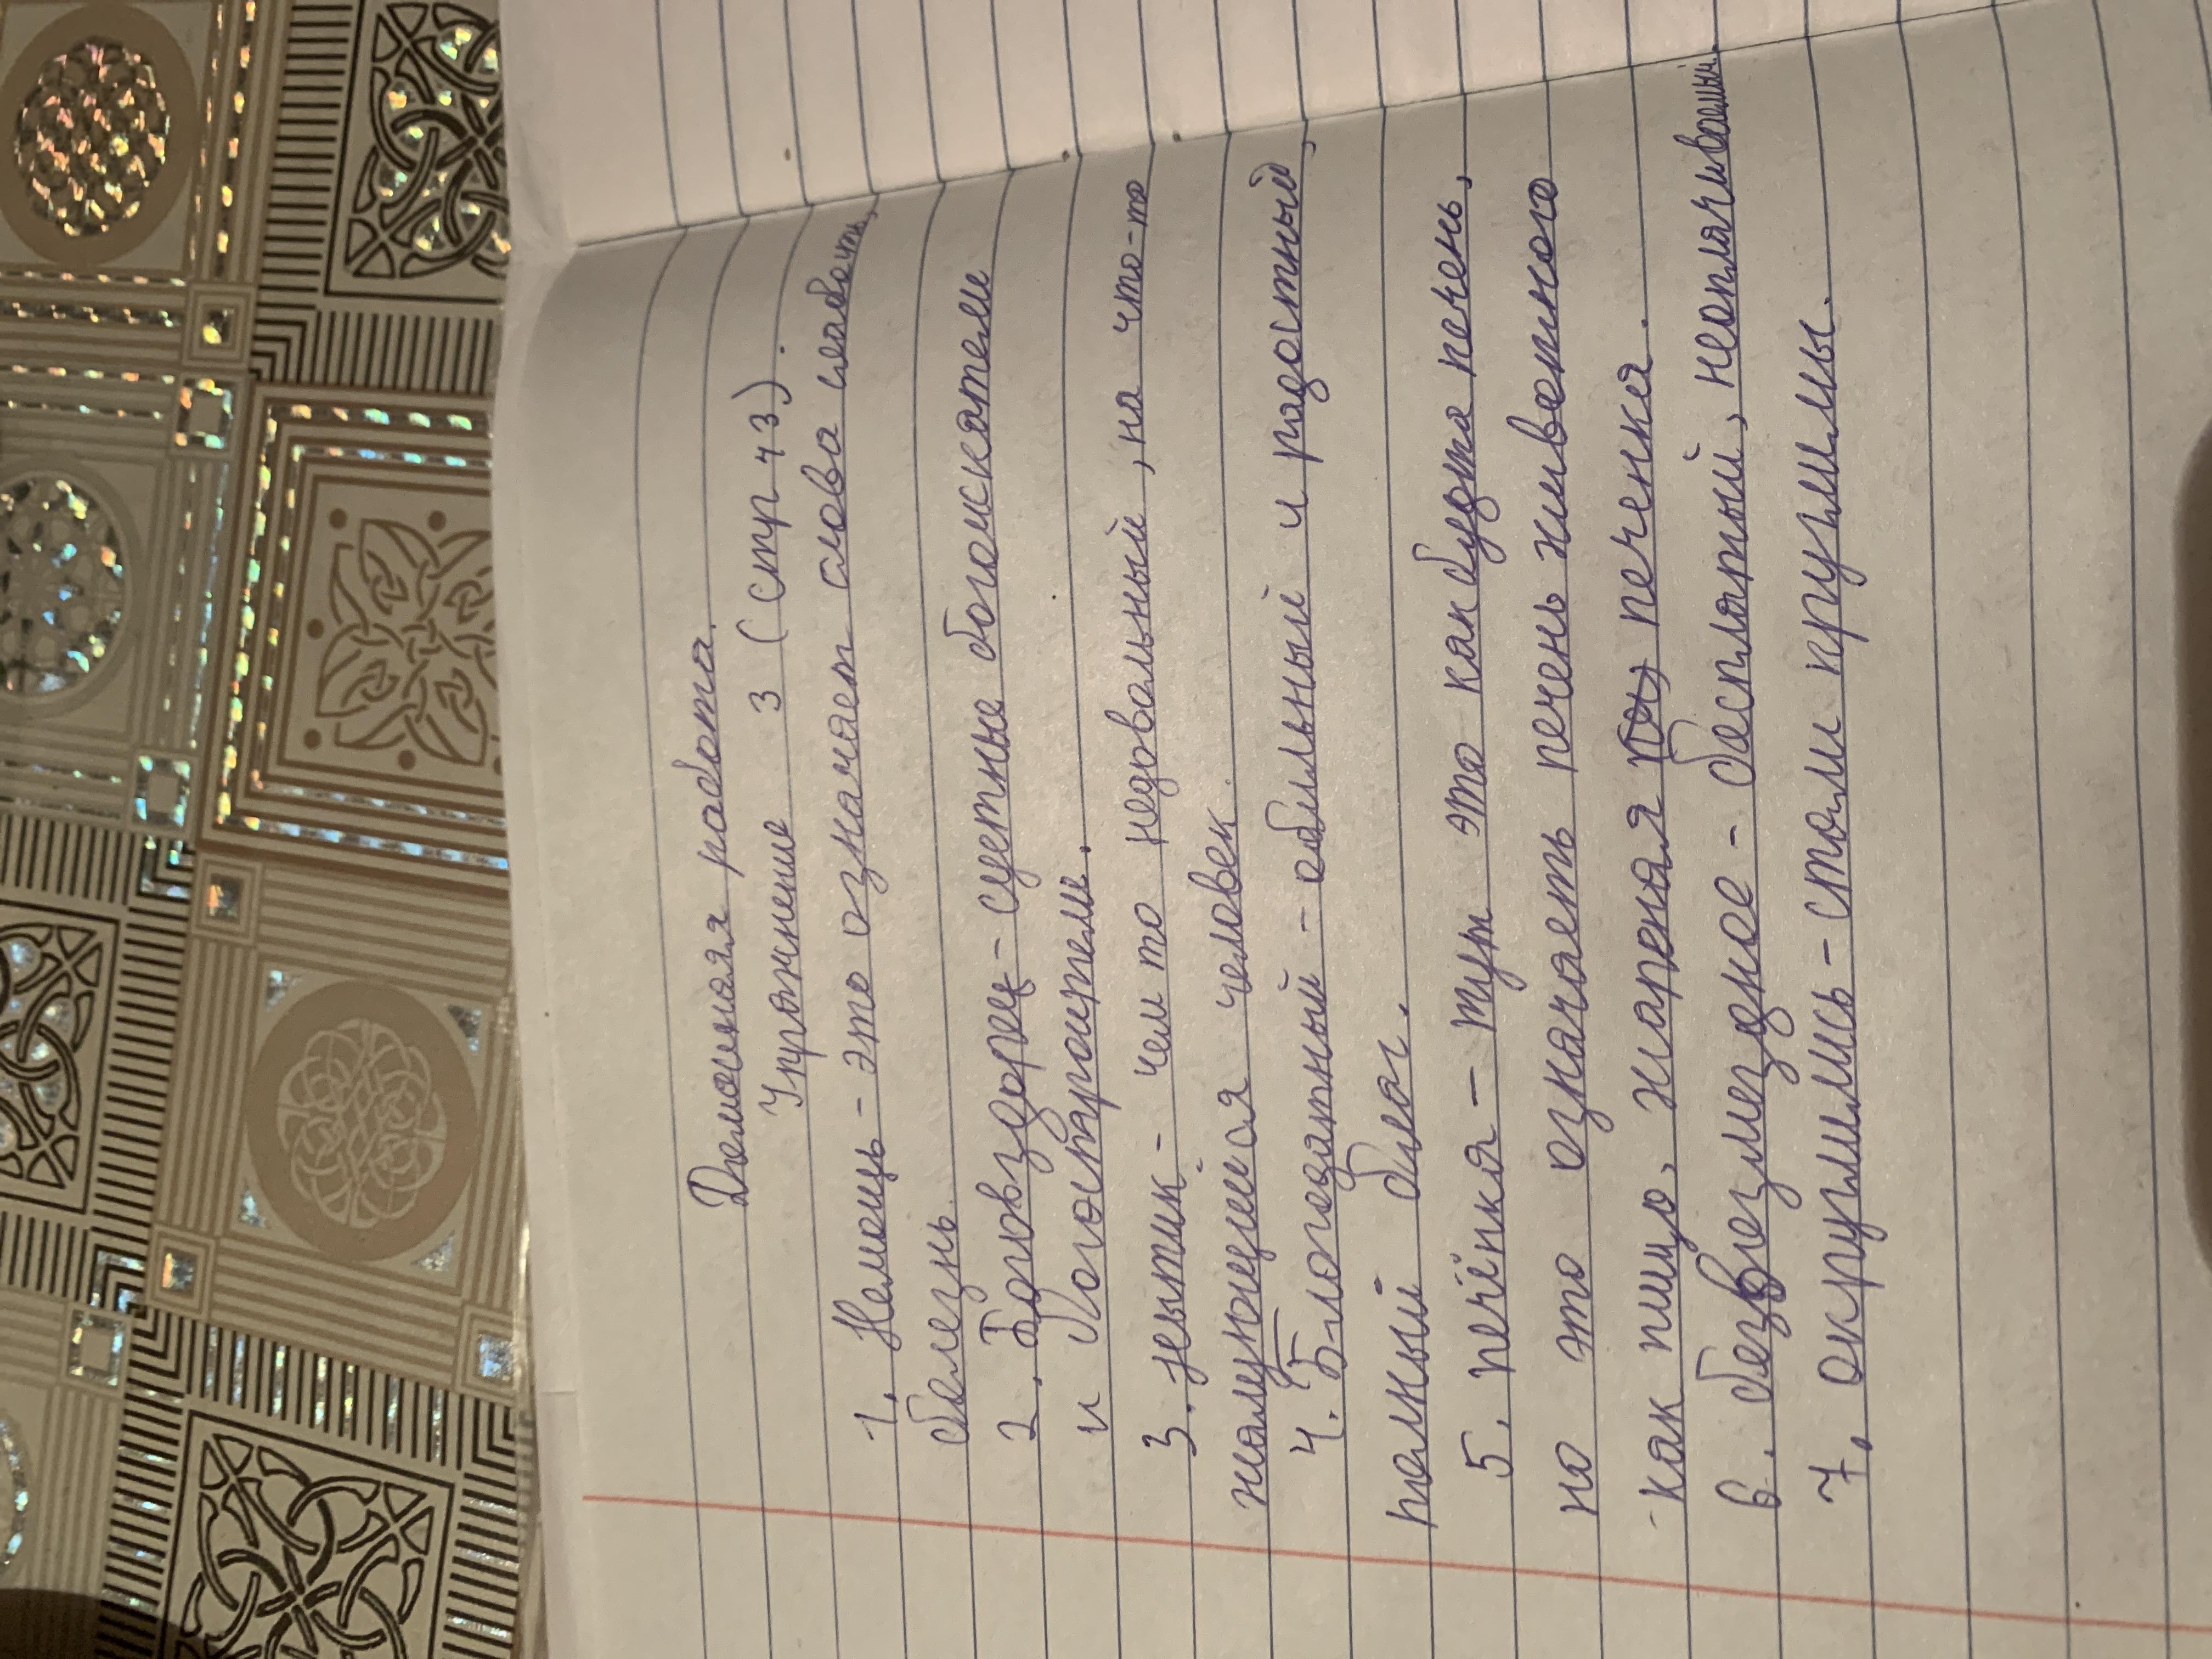 Домошная работа.
Упражнение 3 (стр 43).
1, Немощь - это означает слова слабость,
болезнь.
2. Боговздорец - суетные богоискатели
и богостроители.
3. нытик - чем то недовольный, на что-то
жалующиеся человек.
4. Благодатный - обильный и радостный,
полный благ.
5. печёнка - тут это как будто печень,
но это означаеть печень животного
как пищо, жареная печенка.
6. безвозмездное - бесплатый, неоплачиваемый.
7, окрулились - стали круглилы.